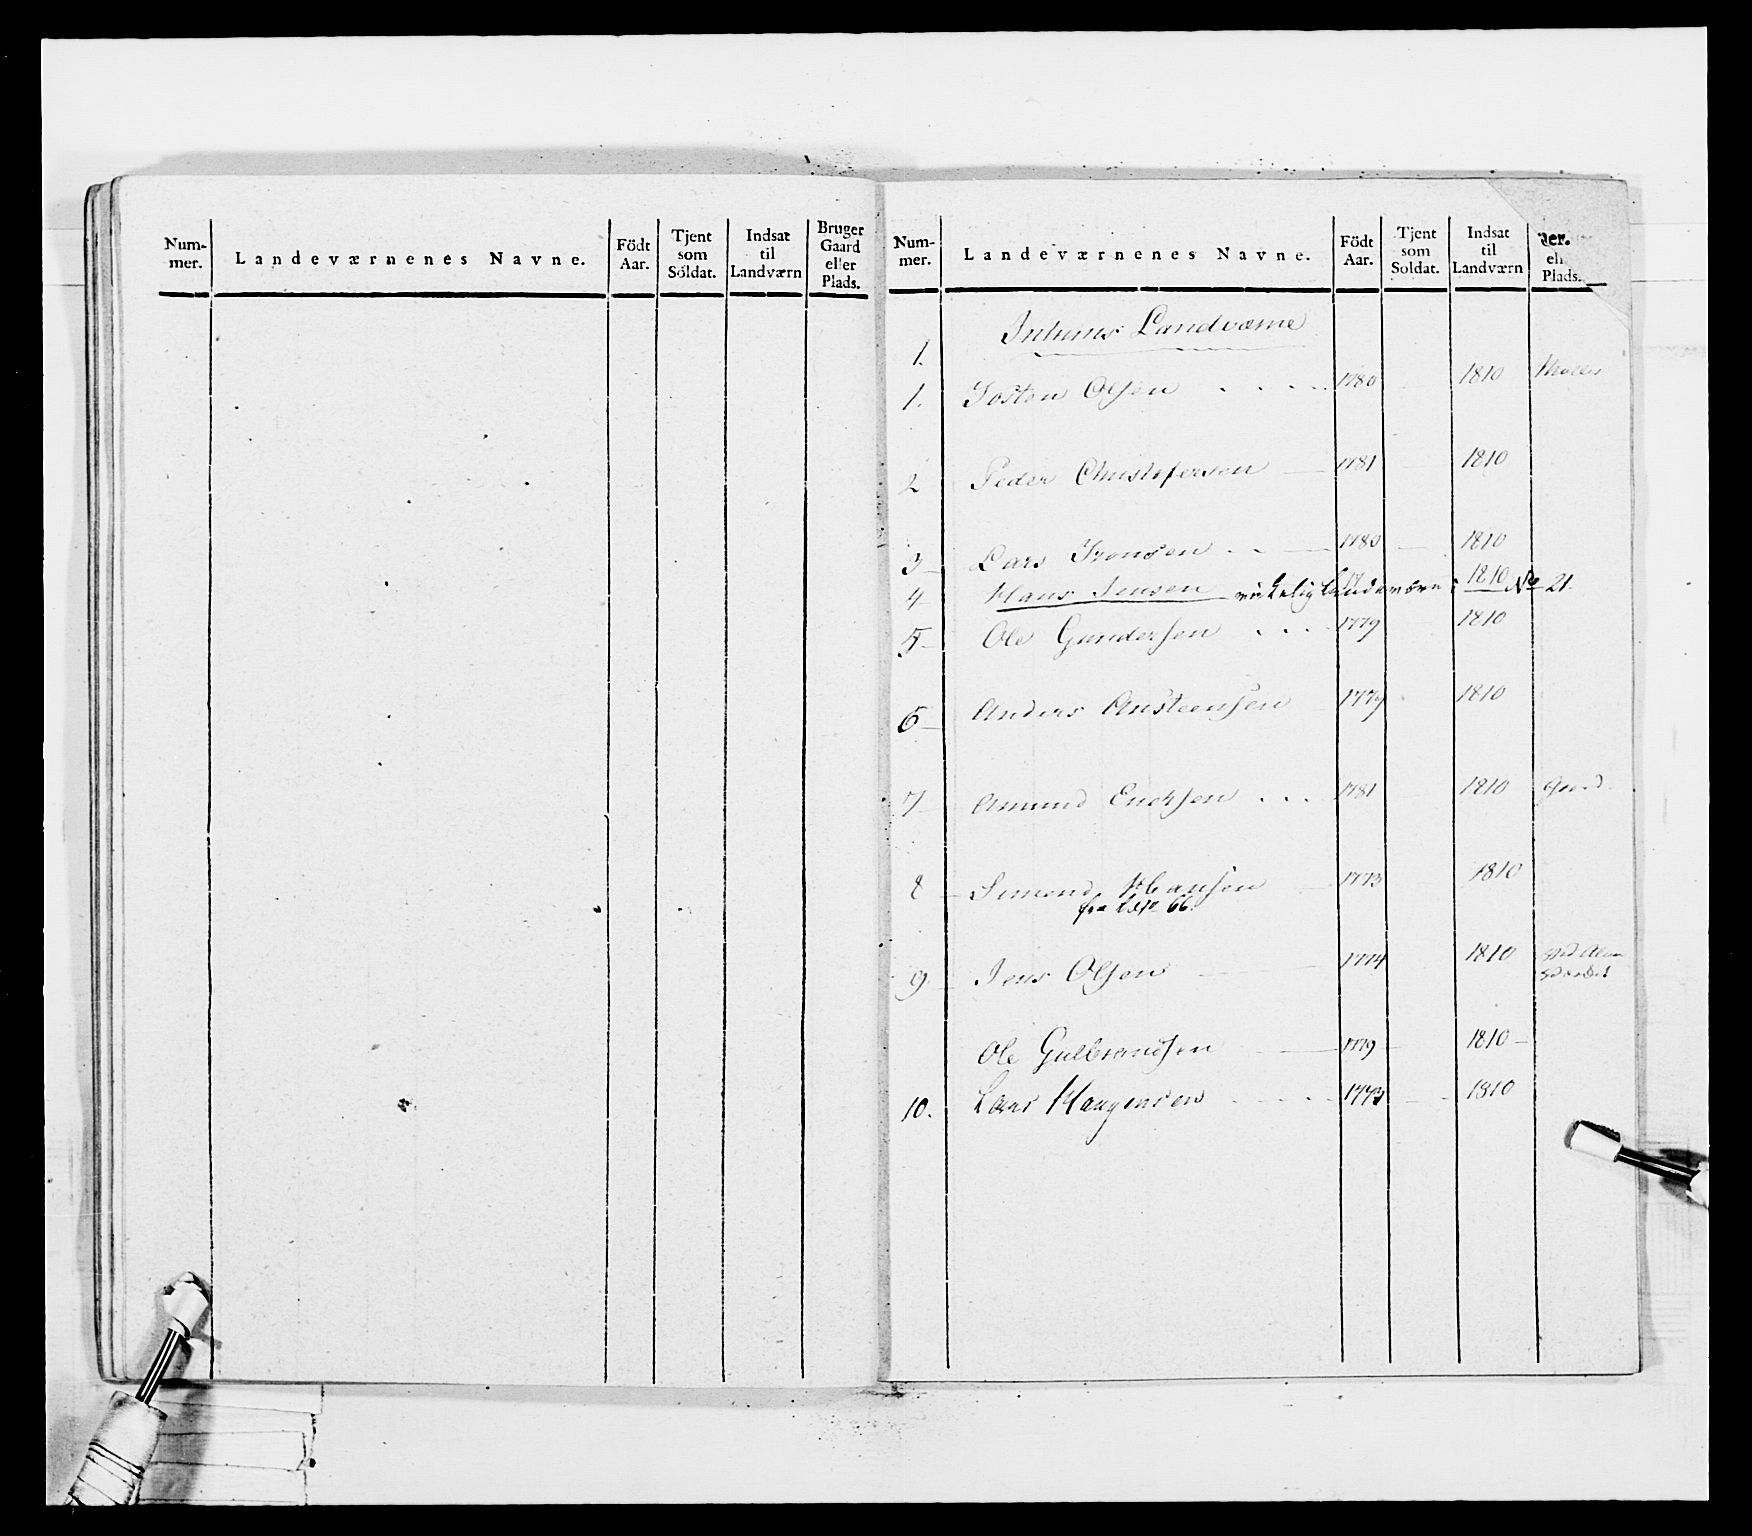 Num-
mer.
Landeværnenes Navne.
Födt
Aar.
Tjent
som
Soldat.
Indsat
til
Landværn
Bruger
Gaard
eller
Plads.
Num-
mer.
Landeværnenes Navne.
Födt
Aar.
Tjent
som
Soldat.
Indsat
til
Landværn
Plads.
Landværne
1.
1. Josten Olsen 1780 1810
2 Peder Christofersen 1781 1810
3 Lars 1780 1810
4 Hans Jensen virkelig Landeværn i 1810 No 21.
5 Ole Gundersen 1779 1810
6 Anders Ansteensen 1779 1810
7 Amund Erichsen 1781 1810 Gaard
8 Simend Hansen 1773 1810
fra 66.
9. Jens Olsen 1774 1810
Ole Gulbrandsen 1779 1810
10. Lars Haagensen 1773 1810